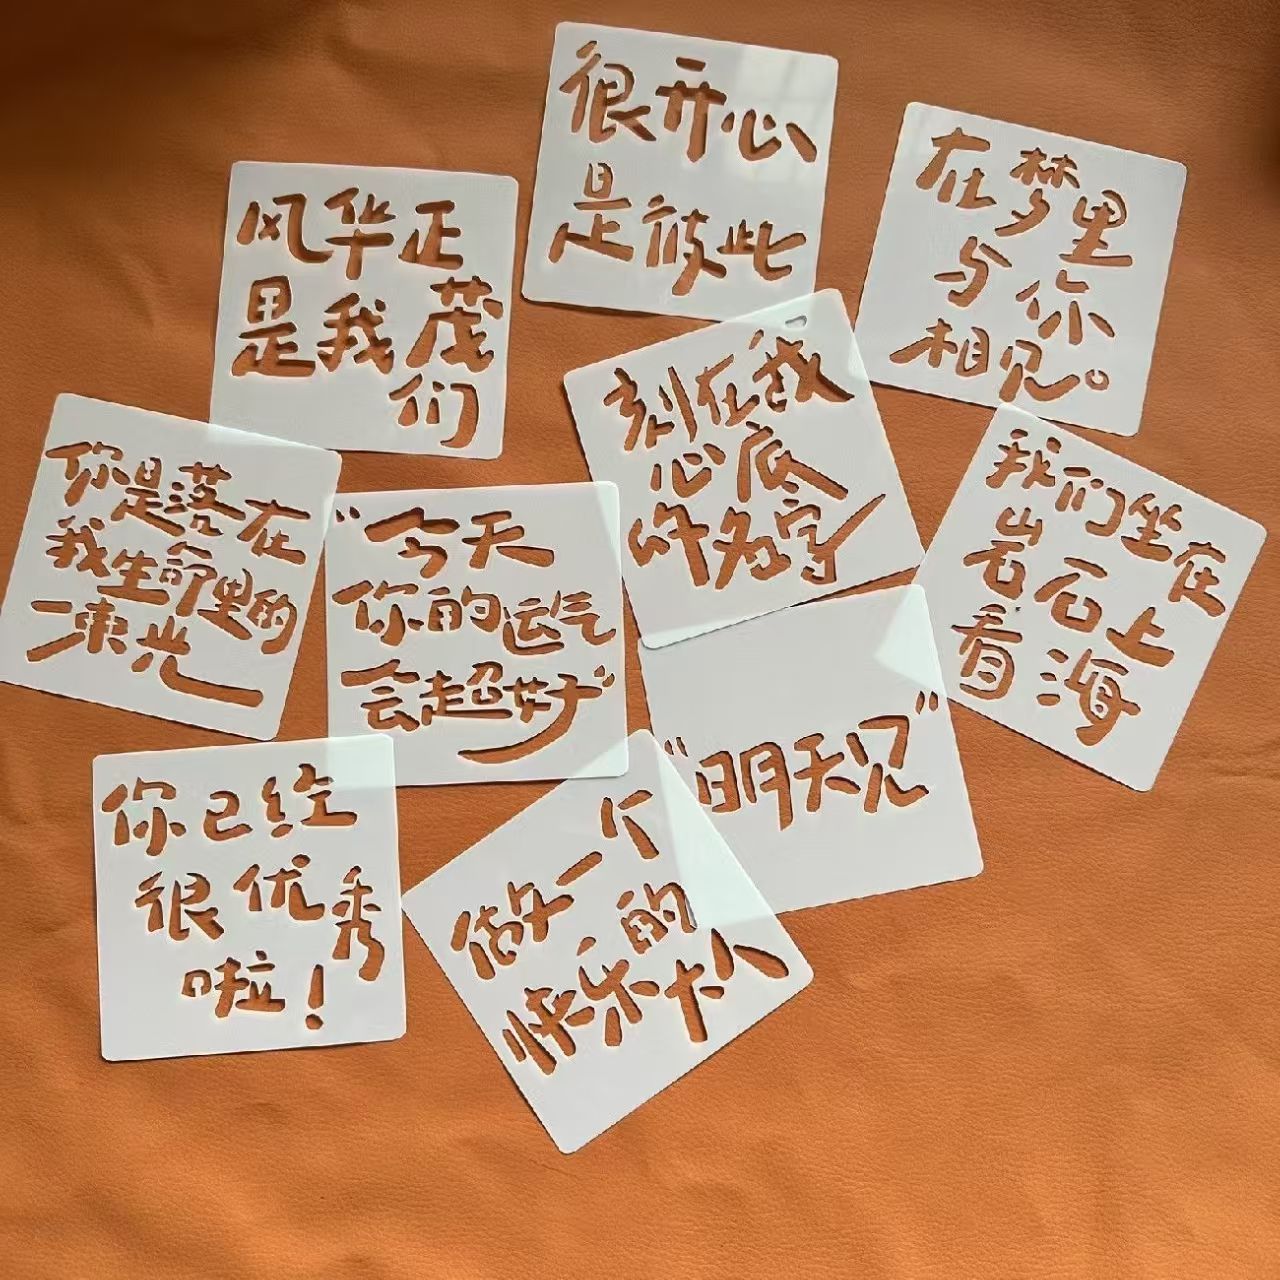 很开心
是彼此
在梦里
与你
相见。
风华正
是我茂
们
刻在我
心底
的名字
我们坐在
岩石上
看海
你是落在
我生命里的
一束光
“今天
你的运气
会超好”
“明天见”
你已经
很优秀
啦!
做一个
快乐的
大人